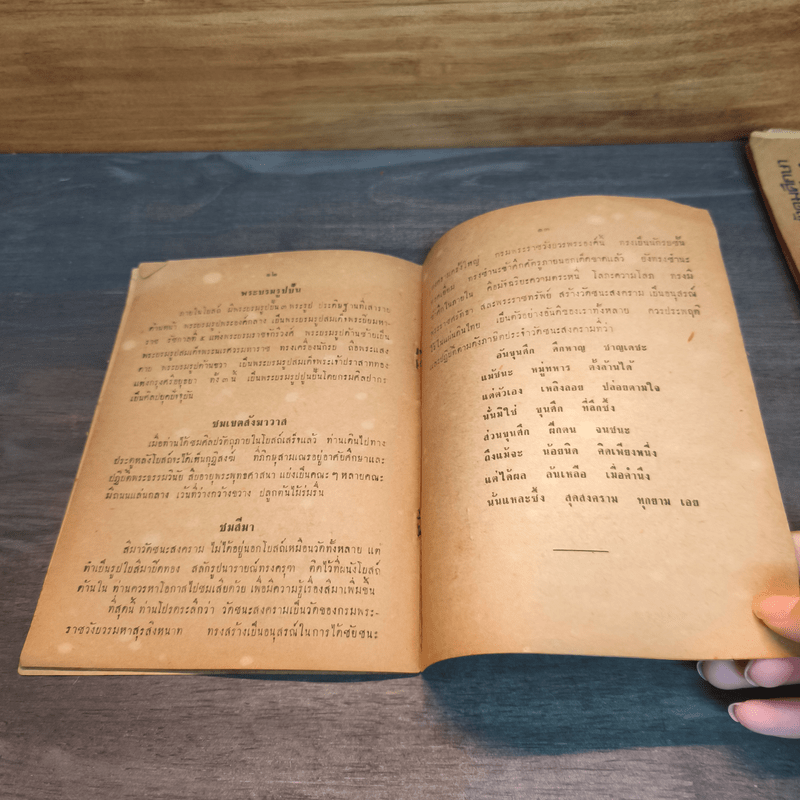 ๑๒
พระบรมรูปปั้น
ภายในโบสถ์ มีพระบรมรูปปั้น ๓ พระรูป ประดิษฐานที่เสาราย
ด้านหน้า พระบรมรูปพระองค์กลาง เป็นพระบรมรูปสมเด็จพระบิยมหา-
ราช รัชกาลที่ ๕ แห่งพระบรมราชจักรีวงศ์ พระบรมรูปด้านซ้ายเป็น
พระบรมรูปสมเด็จพระนเรศวรมหาราช ทรงเครื่องนักรบ ถือพระแสง
ดาบ พระบรมรูปด้านขวา เป็นพระบรมรูปสมเด็จพระเจ้าปราสาททอง
แห่งกรุงศรีอยุธยา ทั้ง ๓ นี้ เป็นพระบรมรูปปูนปั้นโดยกรมศิลปากร
เป็นศิลปยุคปัจจุบัน
ชมเขตสังฆาวาส
เมื่อท่านได้ชมศิลปวัตถุภายในโบสถ์เสร็จแล้ว ท่านเดินไปทาง
ประตูหลังโบสถ์จะได้เห็นกุฏิสงฆ์ ที่ภิกษุสามเณรอยู่อาศัยศึกษาและ
ปฏิบัติพระธรรมวินัย สืบอายุพระพุทธศาสนา แบ่งเป็นคณะ ๆ หลายคณะ
มีถนนแล่นกลาง เว้นที่ว่างกว้างขวาง ปลูกต้นไม้ร่มรื่น
ชมสีมา
สีมาวัดชนะสงคราม ไม่ได้อยู่นอกโบสถ์เหมือนวัดทั้งหลาย แต่
ทำเป็นรูปใบสีมาปิดทอง สลักรูปนารายณ์ทรงครุฑ ติดไว้ที่ผนังโบสถ์
ด้านใน ท่านควรหาโอกาสไปชมเสียด้วย เพื่อมีความรู้เรื่องสีมาเพิ่มขึ้น
ที่สุดนี้ ท่านโปรดระลึกว่า วัดชนะสงครามเป็นวัดของกรมพระ-
ราชวังบวรมหาสุรสิงหนาท ทรงสร้างเป็นอนุสรณ์ในการได้ชัยชนะ
๑๓
กรมพระราชวังบวรพระองค์นี้ ทรงเป็นนักรบชั้น
ทรงชำนะข้าศึกศัตรูภายนอกเด็ดขาดแล้ว ยังทรงชำนะ
คือมัจฉริยะความตระหนี่ โลภะความโลภ ทรงมี
และพระราชทรัพย์ สร้างวัดชนะสงคราม เป็นอนุสรณ์
ไว้ในแผ่นดินไทย เป็นตัวอย่างอันดีของเราทั้งหลาย ควรประพฤติ
และปฏิบัติตามดังภาษิตประจำวัดชนะสงครามที่ว่า
อันขุนศึก ศึกหาญ ชาญเดชะ
แม้ชนะ หมู่ทหาร ตั้งล้านได้
แต่ตัวเอง เหลิงลอย ปล่อยตามใจ
นั่นมิใช่ ขุนศึก ที่ลึกซึ้ง
ส่วนขุนศึก ฝึกตน จนชนะ
ถึงแม้จะ น้อยนิด คิดเพียงหนึ่ง
แต่ได้ผล ล้นเหลือ เมื่อคำนึง
นั่นแหละซึ้ง สุดสงคราม ทุกยาม เอย